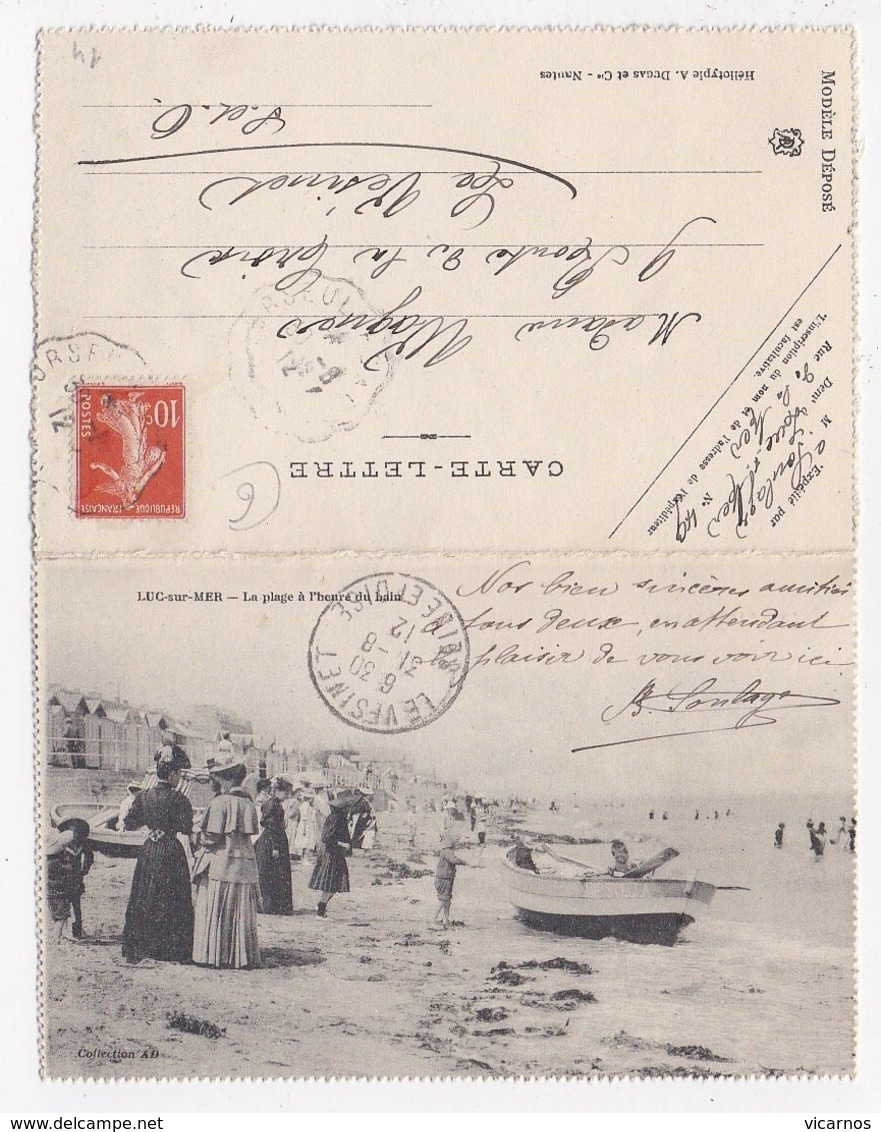 14
Héliotypie A. Dugas et Cie - Nantes
MODÈLE DÉPOSÉ
CARTE-LETTRE
Madame Wagner
9 Route de la Croix
Le Vésinet
S.&.O.
RÉPUBLIQUE FRANÇAISE
10c
POSTES
6
Expédié par
M a Soulage
Demt Luc s/ Mer
Rue N° 49
L'inscription du nom et de l'adresse de l'expéditeur
est facultative.
LUC-sur-MER — La plage à l'heure du bain
LE VESINET
6 30
31 - 8
12
SEINE ET OISE
Nos bien sincères amitiés
à tous deux, en attendant
le plaisir de vous voir ici
B. Soulage
Collection AD
vicarnos